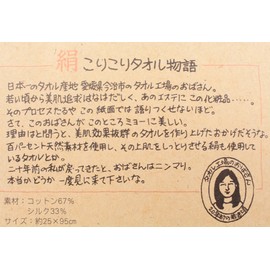 絹 こりこりタオル物語
日本一のタオル産地愛媛県今治市のタオル工場のおばさん。
若い頃から美肌追求はなはだしく、あのエステにこの化粧品……。
そのプロセスたるやこの紙面では語りつくせないほど。
さて、このおばさんがこのところミョーに美しい。
理由はと問うと、美肌効果抜群のタオルを作り上げたおかげだそうな。
百パーセント天然素材を使用し、その上肌をしっとりさせる絹を使用して
いるタオルとか。
二十年前の私が戻ってきたと、おばさんはニンマリ。
本当かどうか一度見に来て下さいな。
素材：コットン67%
シルク33%
サイズ：約25×95cm
タオル工場のおばさん